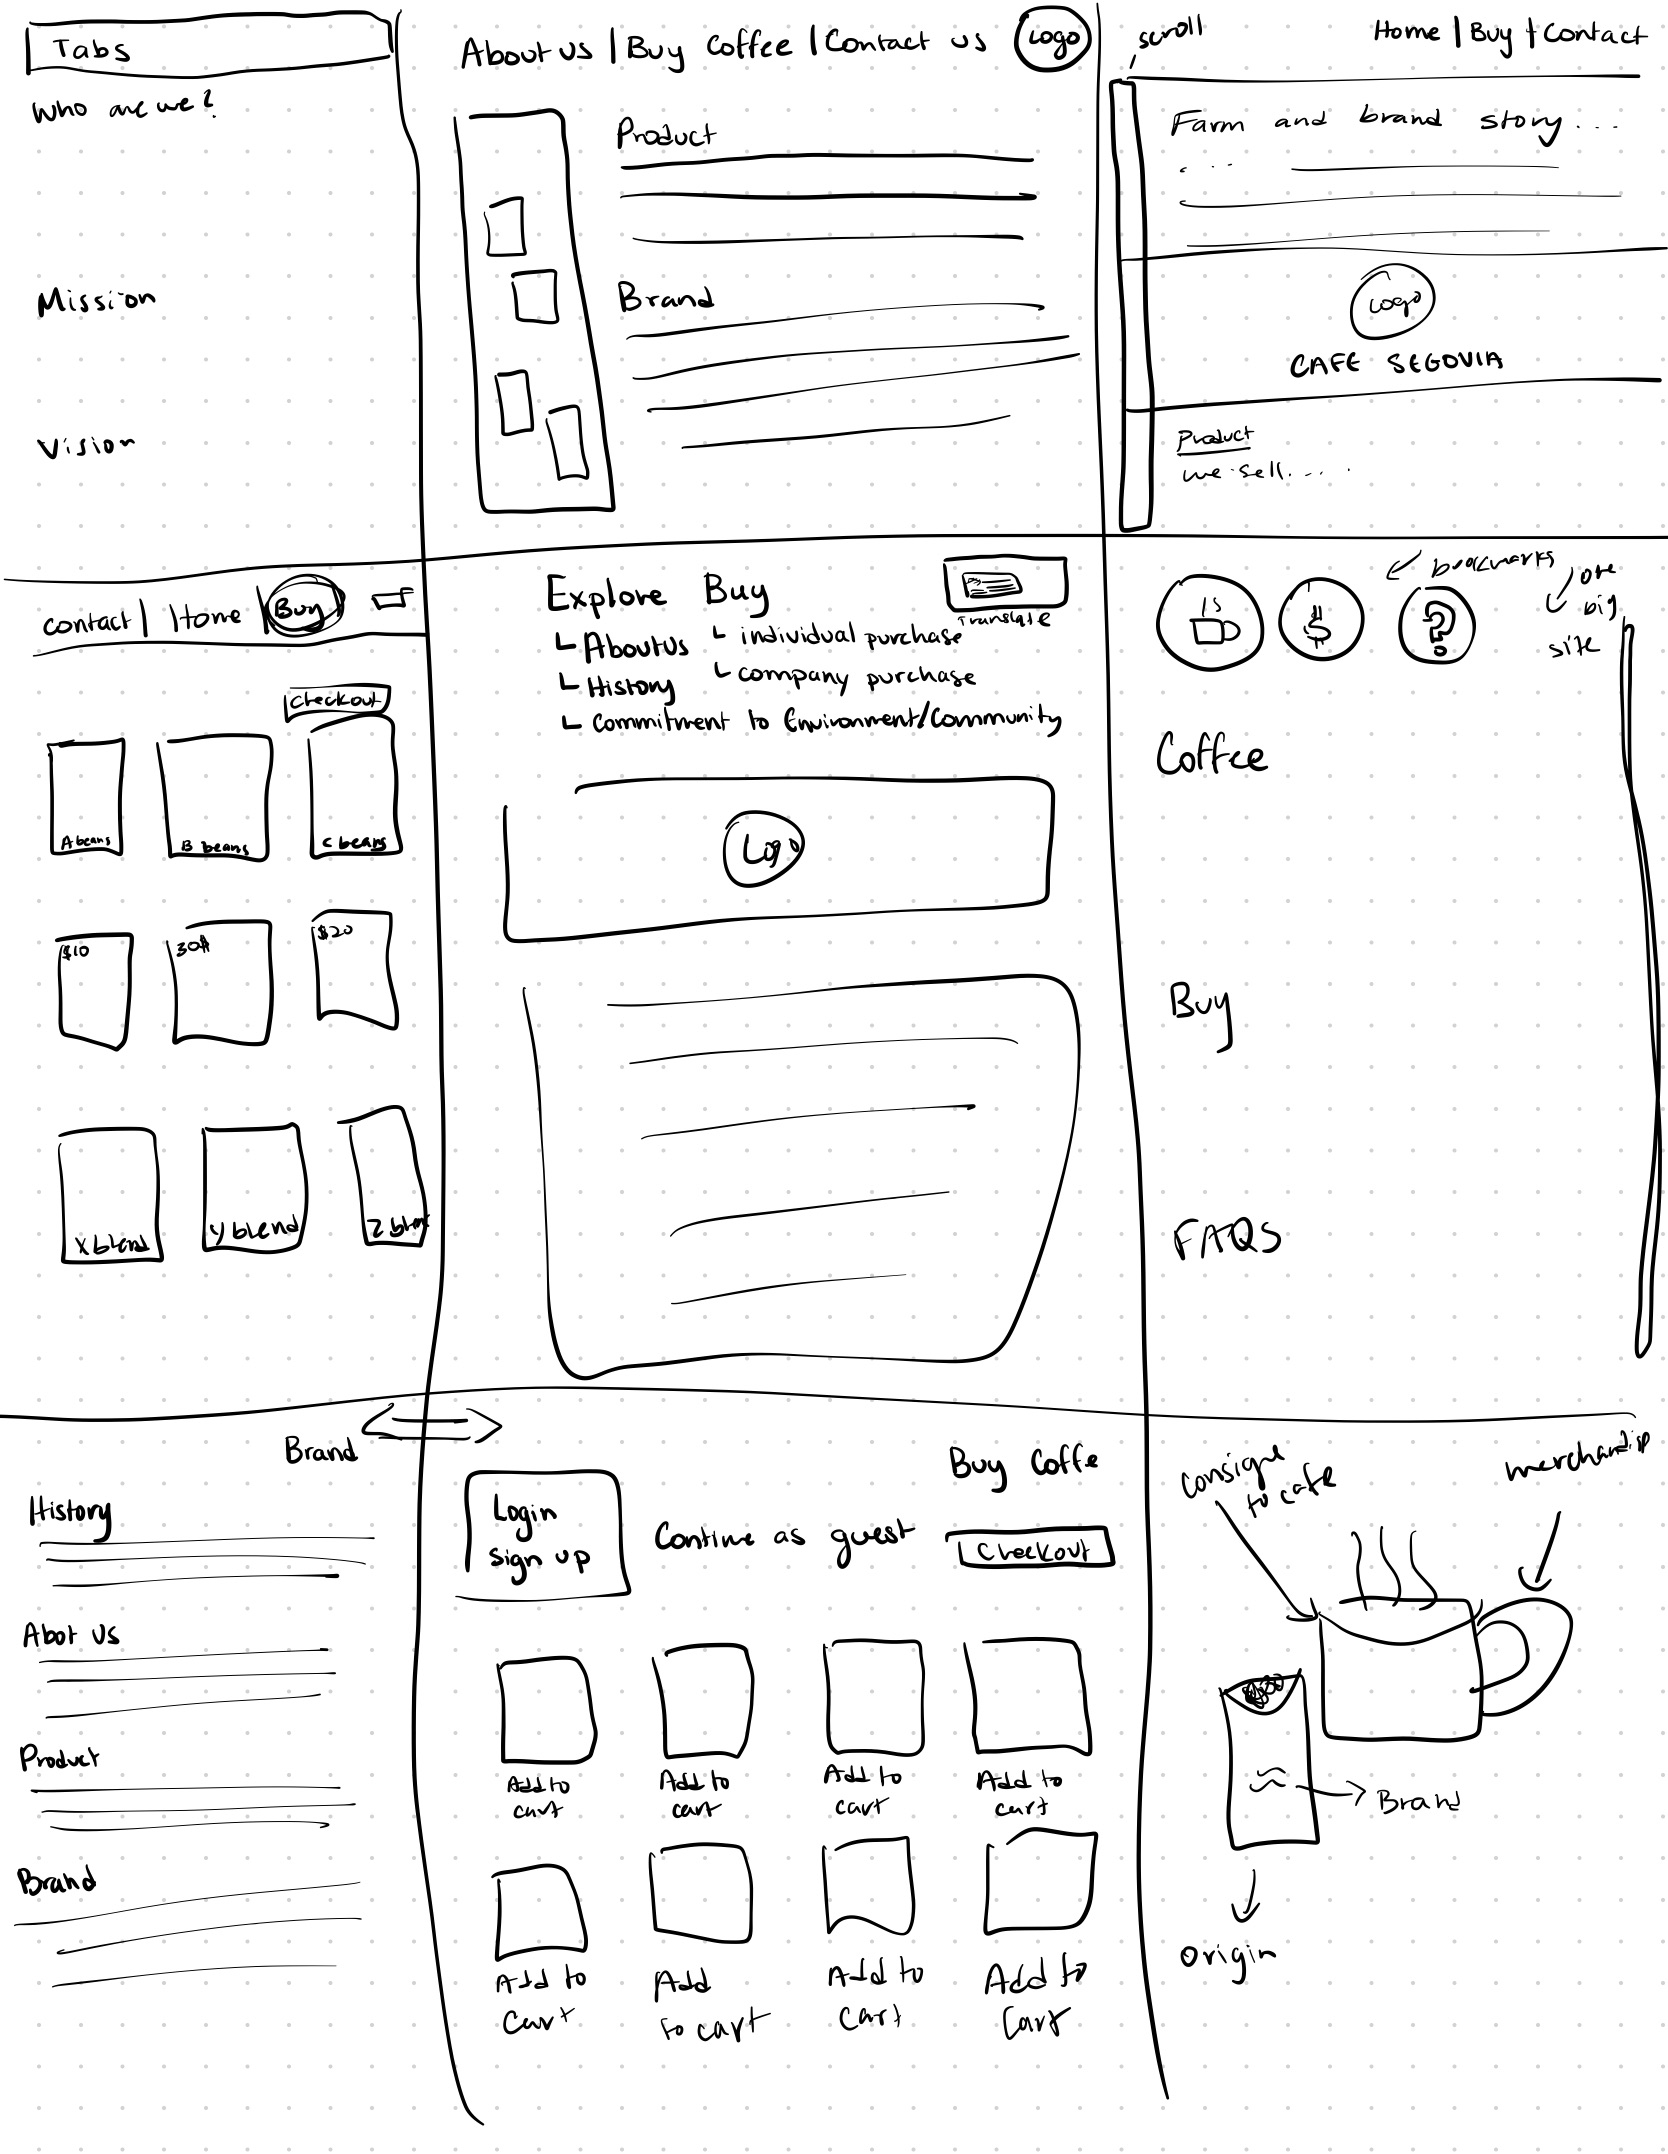 Tabs
Who are we?
Mission
Vision
About us | Buy Coffee | Contact us
Logo
Product
Brand
scroll
Home | Buy + Contact
Farm and brand story....
Logo
CAFE SEGOVIA
Product
we sell.....
contact | Home | Buy
Checkout
A beans
B beans
C beans
$10
30$
$20
X blend
Y blend
Z blen
Explore Buy
Translate
About us
individual purchase
History
company purchase
Commitment to Environment/Community
Logo
bookmarks
one
big
site
$
?
Coffee
Buy
FAQS
Brand
History
Abot Us
Product
Brand
Buy Coffe
Login
sign up
Continue as guest
Checkout
Add to
cart
Add to
cart
Add to
cart
Add to
cart
Add to
Cart
Add
to cart
Add to
Cart
Add to
Cart
to cafe
Brand
Origin